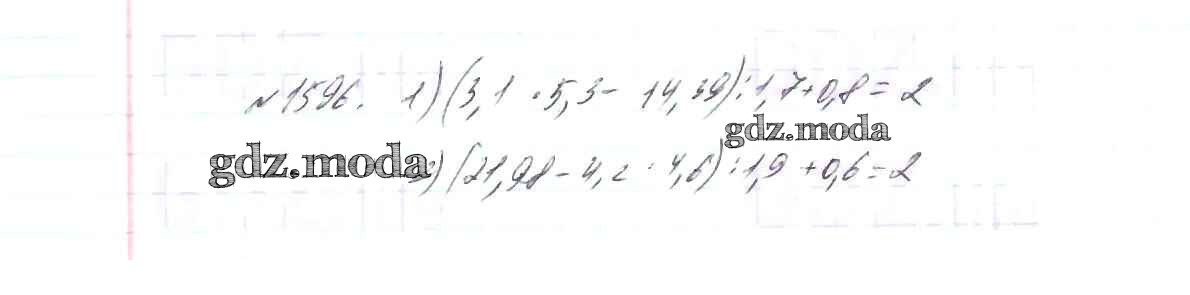 №1596. 1) (3,1 · 5,3 - 14,39) : 1,7 + 0,8 = 2
gdz.moda
gdz.moda
(21,98 - 4,2 · 4,6) : 1,9 + 0,6 = 2